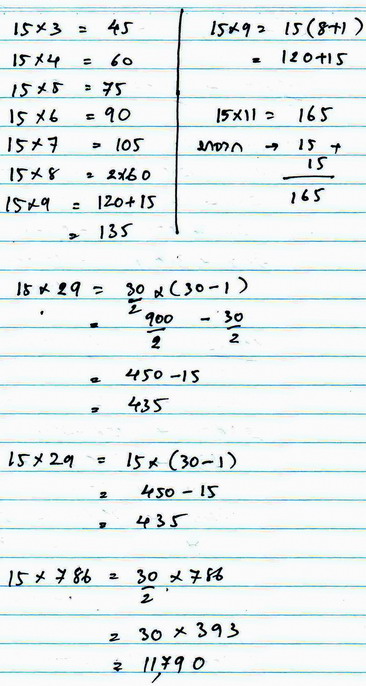 15×3 = 45
15×4 = 60
15×5 = 75
15×6 = 90
15×7 = 105
15×8 = 2×60
15×9 = 120+15
= 135
15×9 = 15(8+1)
= 120+15
15×11 = 165
→ 15 +
15
165
15×29 = 30/2 × (30-1)
= 900/2 - 30/2
= 450-15
= 435
15×29 = 15×(30-1)
= 450-15
= 435
15×786 = 30/2 × 786
= 30 × 393
= 11,790